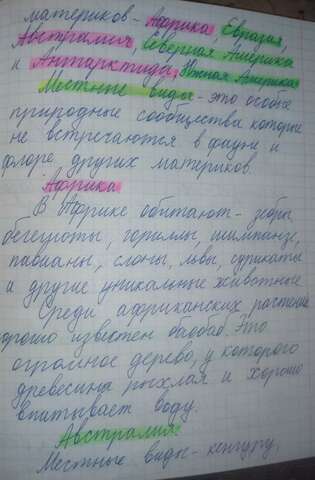 материков - Африка, Евразия,
Австралия, Северная Америка
и Антарктида, Южная Америка.
Местные виды - это особые
природные сообщества которые
не встречаются в фауне и
флоре других материков.
Африка
В Африке обитают - зебры,
бегемоты, гориллы, шимпанзе,
павианы, слоны, львы, сурикаты
и другие уникальные животные
Среди африканских растений
хорошо известен баобаб. Это
огромное дерево, у которого
древесина рыхлая и хорошо
впитывает воду.
Австралия.
Местные виды - кенгуру,